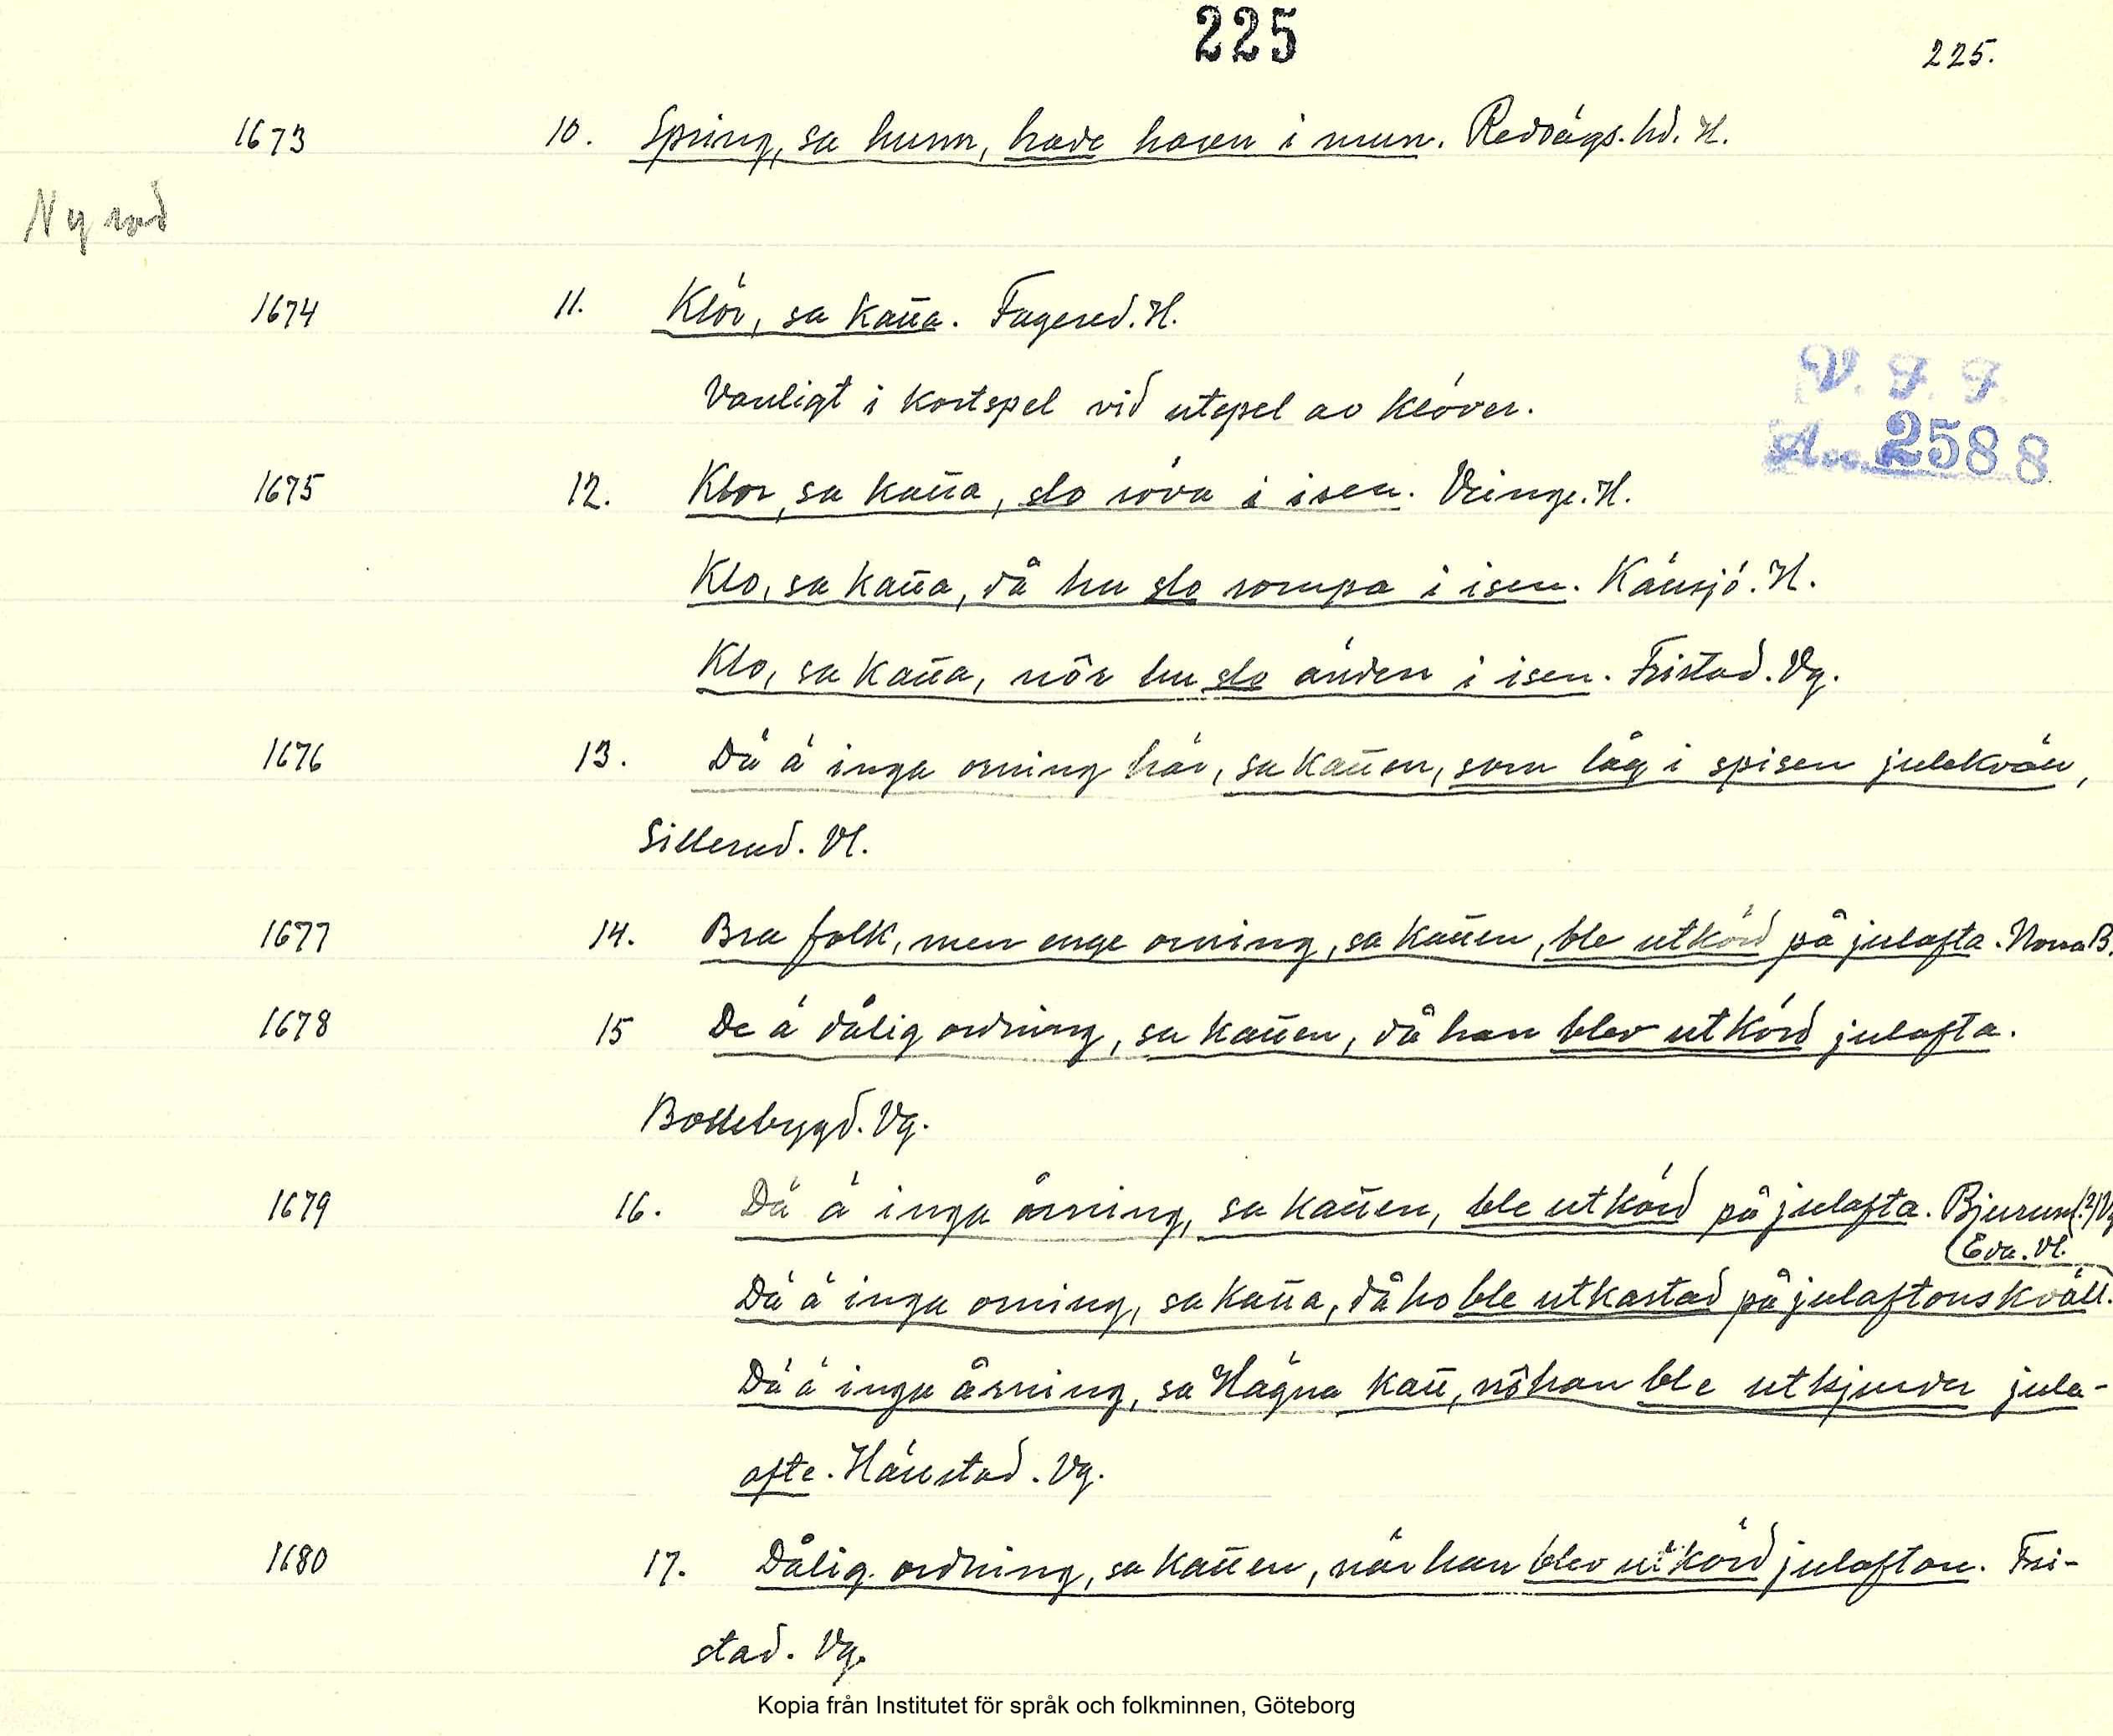 225
225.
1673 10. Spring, sa hunn, hade haren i mun. Redvägs. hd. H.
Ny rad
1674 11. Klör, sa kat̄a. Fagered. H.
Vanligt i kortspel vid utspel av klöver.
V. F. F.
Acc. 2588
1675 12. Klor, sa kat̄a, slo röva i isen. Veinge. H.
Klo, sa kat̄a, då hu slo rompa i isen. Känsjö. H.
Klo, sa kat̄a, nör hu slo änden i isen. Fristad. Vg.
1676 13. Dä ä inga orning här, sa kat̄en, som låg i spisen julekvän,
Sillerud. Vl.
1677 14. Bra folk, men enge orning, sa kat̄en, ble utkörd på julafta. Norra B.
1678 15 De ä dålig ordning, sa kat̄en, då han blev utkörd julafta.
Bollebygd. Vg.
1679 16. Dä ä inga årning, sa kat̄en, ble utkörd på julafta. Bjurum(?) Vg
Eda. Vl.
Dä ä inga orning, sa kat̄a, då ho ble utkastad på julaftonskväll.
Dä ä inga årning, sa Hägna kat̄, nô han ble utkjurder jula-
afte. Härstad. Vg.
1680 17. Dålig ordning, sa kat̄en, när han blev utkörd julafton. Fri-
stad. Vg.
Kopia från Institutet för språk och folkminnen, Göteborg